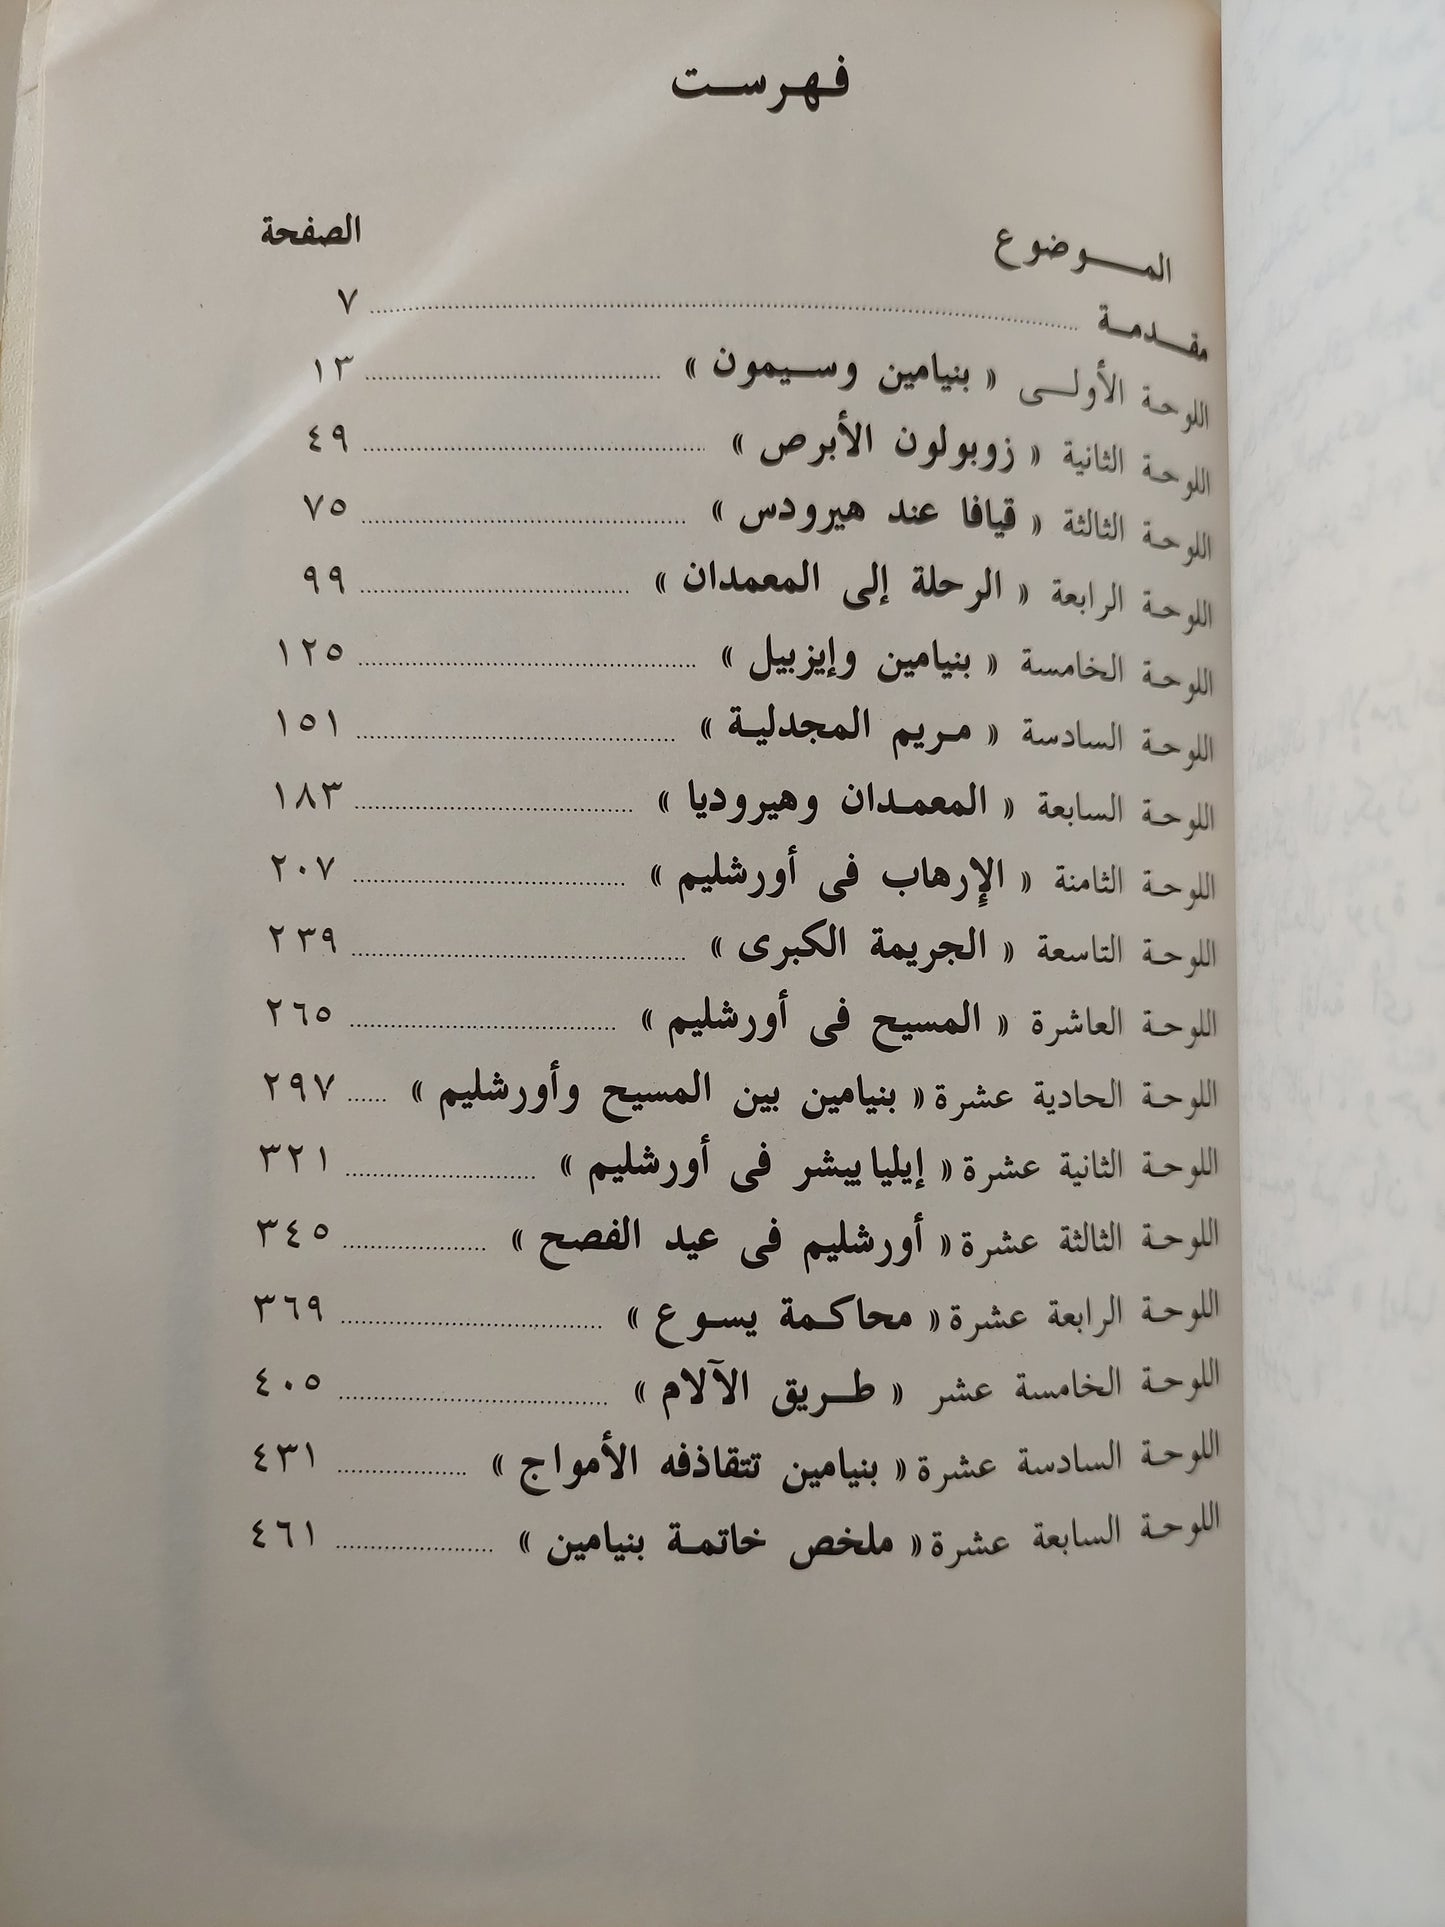 فهرست
الموضوع الصفحة
مقدمة ........ ٧
اللوحة الأولى « بنيامين وسيمون » ........ ١٣
اللوحة الثانية « زوبولون الأبرص » ........ ٤٩
اللوحة الثالثة « قيافا عند هيرودس » ........ ٧٥
اللوحة الرابعة « الرحلة إلى المعمدان » ........ ٩٩
اللوحة الخامسة « بنيامين وإيزبيل » ........ ١٢٥
اللوحة السادسة « مريم المجدلية » ........ ١٥١
اللوحة السابعة « المعمدان وهيروديا » ........ ١٨٣
اللوحة الثامنة « الإرهاب فى أورشليم » ........ ٢٠٧
اللوحة التاسعة « الجريمة الكبرى » ........ ٢٣٩
اللوحة العاشرة « المسيح فى أورشليم » ........ ٢٦٥
اللوحة الحادية عشرة « بنيامين بين المسيح وأورشليم » ...... ٢٩٧
اللوحة الثانية عشرة « إيليا يبشر فى أورشليم » ........ ٣٢١
اللوحة الثالثة عشرة « أورشليم فى عيد الفصح » ........ ٣٤٥
اللوحة الرابعة عشرة « محاكمة يسوع » ........ ٣٦٩
اللوحة الخامسة عشر « طريق الآلام » ........ ٤٠٥
اللوحة السادسة عشرة « بنيامين تتقاذفه الأمواج » ........ ٤٣١
اللوحة السابعة عشرة « ملخص خاتمة بنيامين » ........ ٤٦١